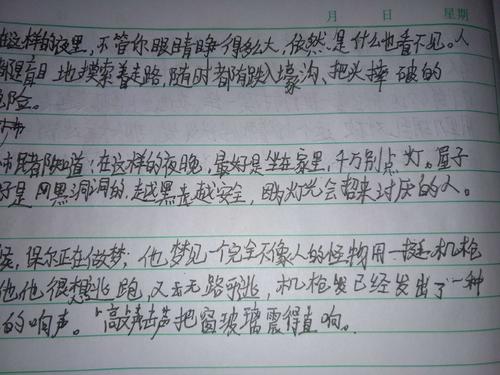 月 日 星期
这样的夜里，不管你眼睛睁得多么大，依然是什么也看不见。人
都是盲目地摸索着走路，随时都有跌入壕沟、把头摔破的
危险。
市
市民都知道：在这样的夜晚，最好是坐在家里，千万别点灯。屋子
好是阴黑洞洞的，越黑走越安全，因为灯光会招来讨厌的人。
保尔正在做梦；他梦见一个完全不像人的怪物用一挺机枪
他他很想逃跑，又无路可逃，机枪已经发出了一种
的响声。敲击声把窗玻璃震得直响。